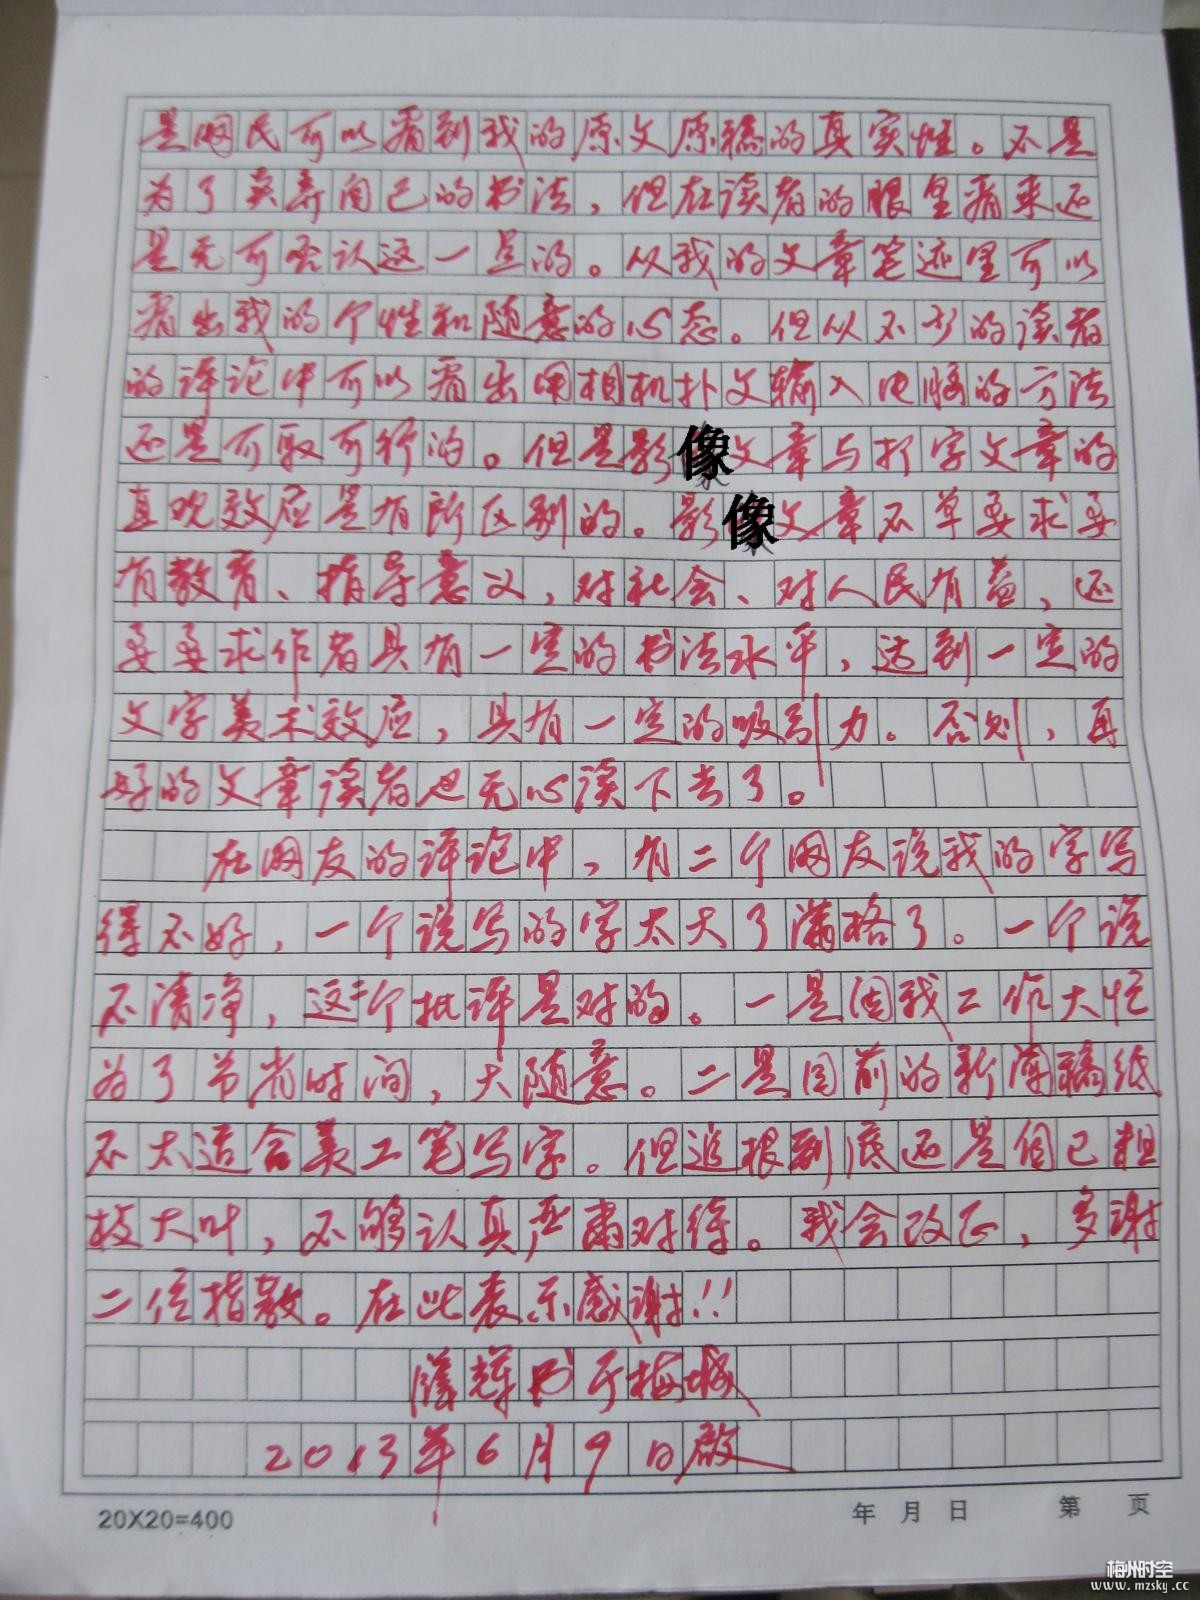 是网民可以看到我的原文原稿的真实性。不是
为了卖弄自己的书法，但在读者的眼里看来还
是无可否认这一点的。从我的文章笔迹里可以
看出我的个性和随意的心态。但从不少的读者
的评论中可以看出用相机扑文输入电脑的方法
还是可取可行的。但是影像文章与打字文章的
直观效应是有所区别的。影像文章不单要求要
有教育、指导意义，对社会、对人民有益，还
要要求作者具有一定的书法水平，达到一定的
文字美术效应，具有一定的吸引力。否则，再
好的文章读者也无心读下去了。
在网友的评论中，有二个网友说我的字写
得不好，一个说写的字太大了满格了。一个说
不清净，这二个批评是对的。一是因我工作太忙
为了节省时间，太随意。二是目前的新簿稿纸
不太适合美工笔写字。但追根到底还是自己粗
枝大叶，不够认真严肃对待。我会改正，多谢
二位指教。在此表示感谢!!
辉书于梅城
2013年6月9日启
20X20=400
年 月 日 第 页
梅州时空
www.mzsky.cc